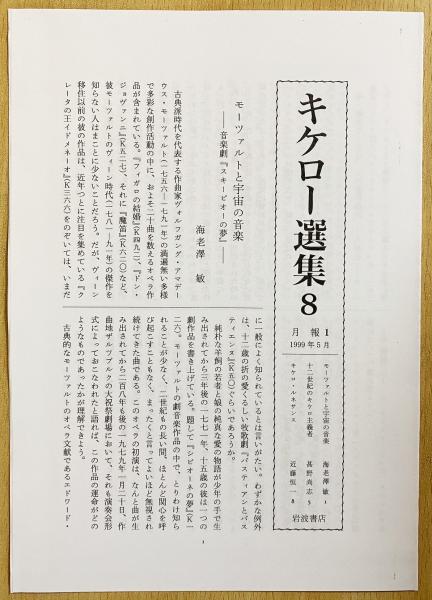 キケロー選集8
月報1
1999年5月
モーツァルトと宇宙の音楽 海老澤 敏 1
十二世紀のキケロ主義者 甚野尚志 5
キケロ・ルネサンス 近藤恒一 8
岩波書店
モーツァルトと宇宙の音楽
――音楽劇『スキーピオーの夢』――
海老澤 敏
古典派時代を代表する作曲家ヴォルフガング・アマデー
ウス・モーツァルト(一七五六―一七九一)の満遍無い多様
で多彩な創作活動の中に、およそ二十曲を数えるオペラ作
品が含まれている。『フィガロの結婚』(K四九二)、『ドン・
ジョヴァンニ』(K五二七)、それに『魔笛』(K六二〇)など、
彼モーツァルトのヴィーン時代(一七八一―九一年)の傑作を
知らない人はまことに少ないことだろう。だが、ヴィーン
移住以前の彼の作品は、近年つとに注目を集めている『ク
レータの王イドメネーオ』(K三六六)をのぞいては、いまだ
に一般によく知られているとは言いがたい。わずかな例外
は、十二歳の折の愛くるしい牧歌劇『バスティアンとバス
ティエンヌ』(K五〇)ぐらいであろうか。
純朴な羊飼の若者と娘の純真な愛の物語が少年の手で生
み出されてから三年後の一七七一年、十五歳の彼は一つの
劇作品を書き上げている。題して『シピオーネの夢』(K一
二六)。モーツァルトの劇音楽作品の中で、とりわけ知ら
れることが少なく、二世紀もの長い間、ほとんど関心を呼
び起こすこともなく、まったくと言ってよいほど無視され
続けてきた曲である。このオペラの初演は、なんと曲が生
み出されてから二百八年も後の一九七九年一月二十日、作
曲地ザルツブルクの大祝祭劇場において、それも演奏会形
式によっておこなわれたと語れば、この作品の運命がどの
ようなものであったかが理解できよう。
古典的なモーツァルトのオペラ文献であるエドワード・
1